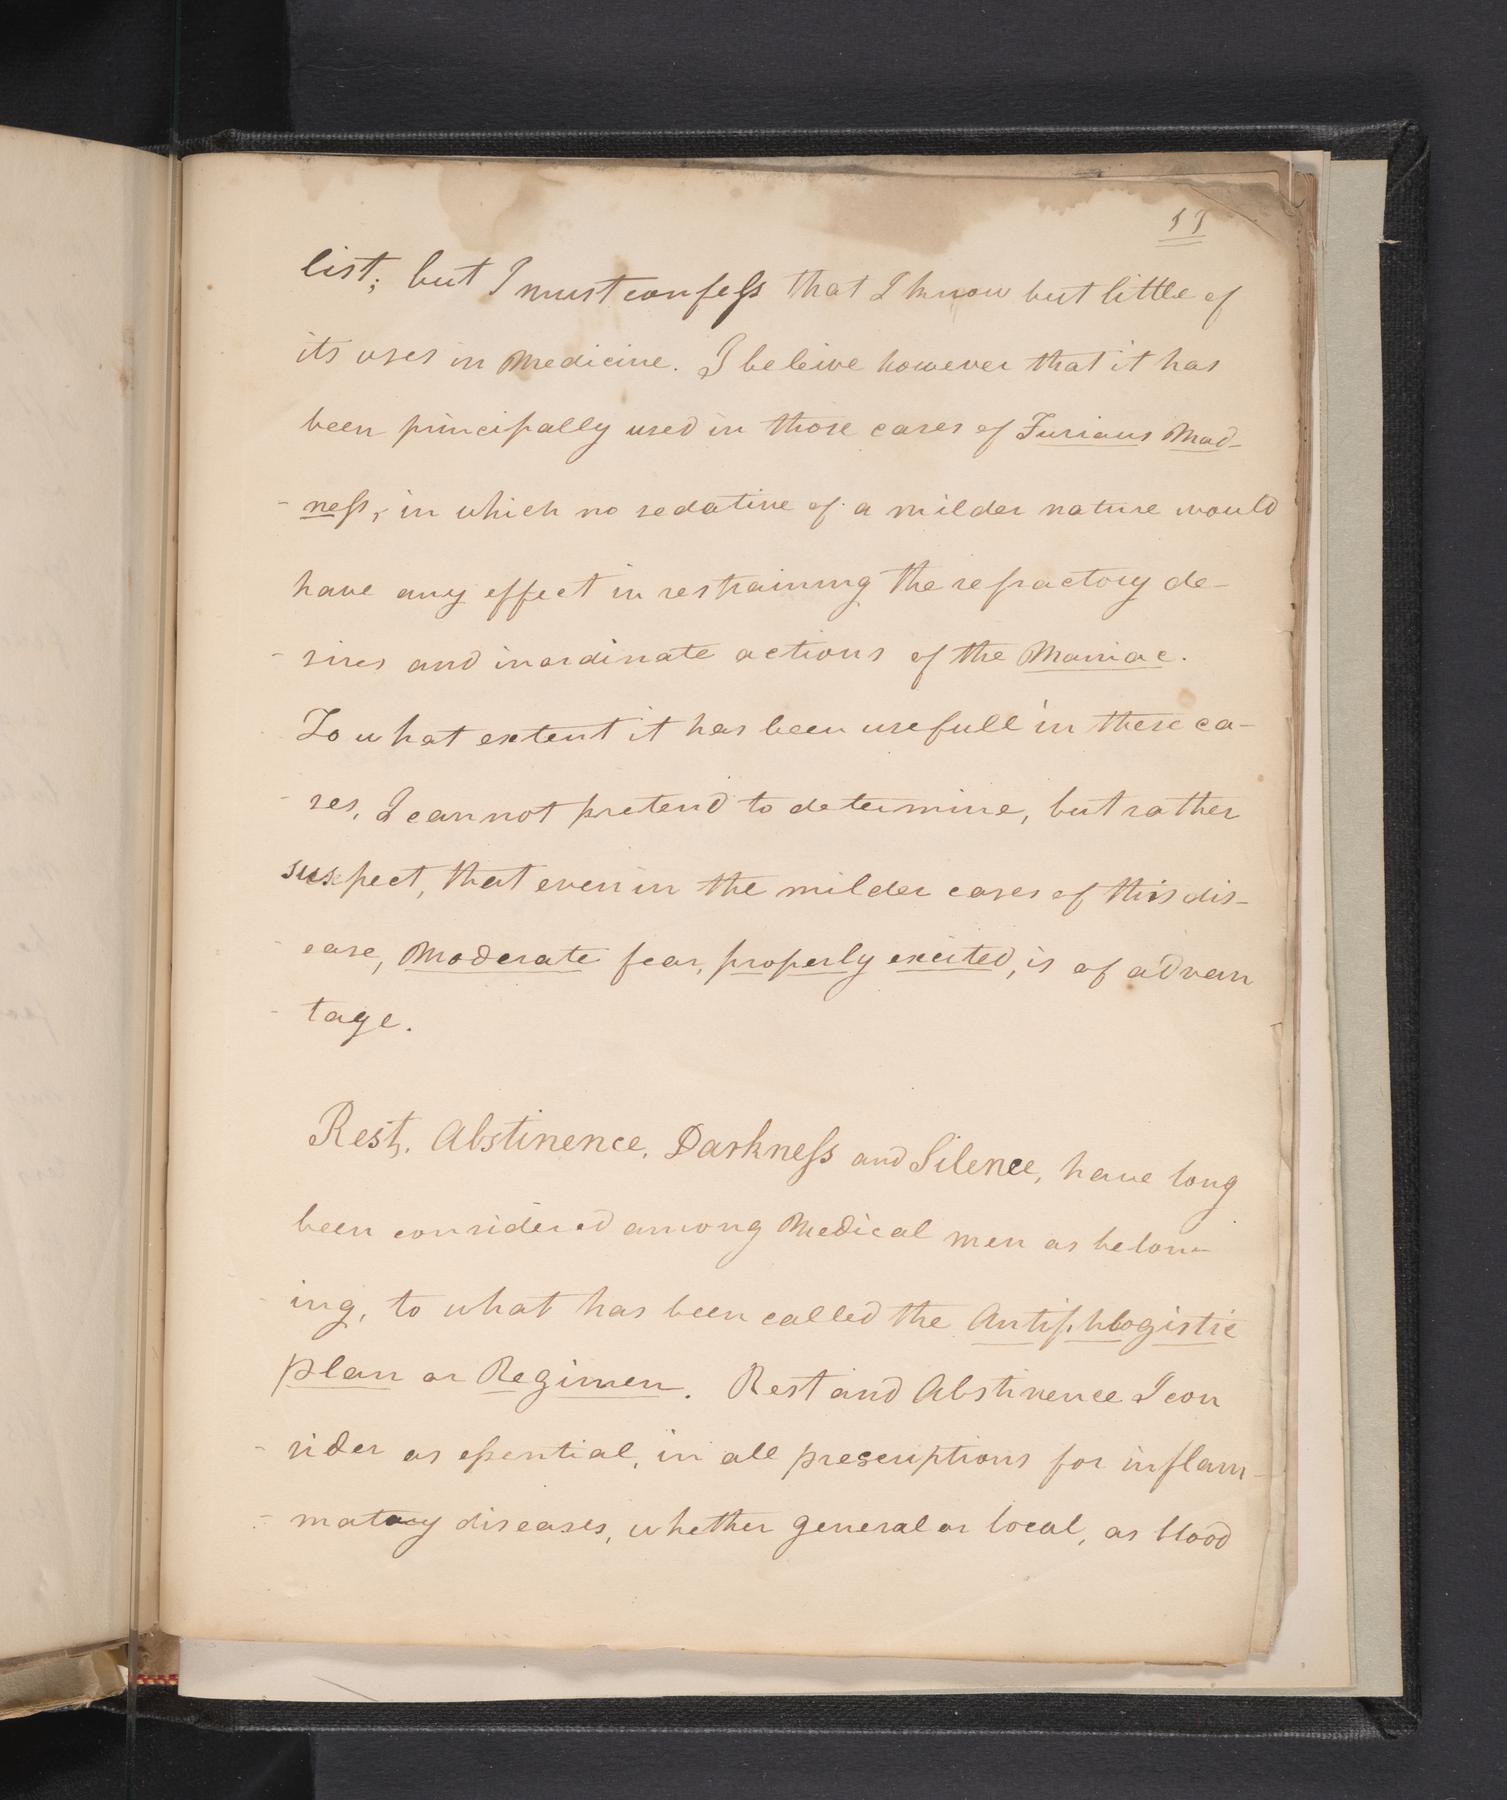 11
list; but I must confess that I know but little of
its uses in Medicine. I beleive however that it has
been principally used in those cases of Furious Mad-
-ness, in which no sedative of a milder nature would
have any effect in restraining the refractory de-
-sires and inordinate actions of the Maniac.
To what extent it has been usefull in these ca-
-ses, I cannot pretend to determine, but rather
suspect, that even in the milder cases of this dis-
-ease, Moderate fear, properly excited, is of advan
-tage.
Rest, Abstinence, Darkness and Silence, have long
been considered among Medical men as belon-
-ing, to what has been called the Antiphlogistic
plan or Regimen. Rest and Abstinence I con
-sider as essential, in all prescriptions for inflam-
-matory diseases, whether general or local, as blood